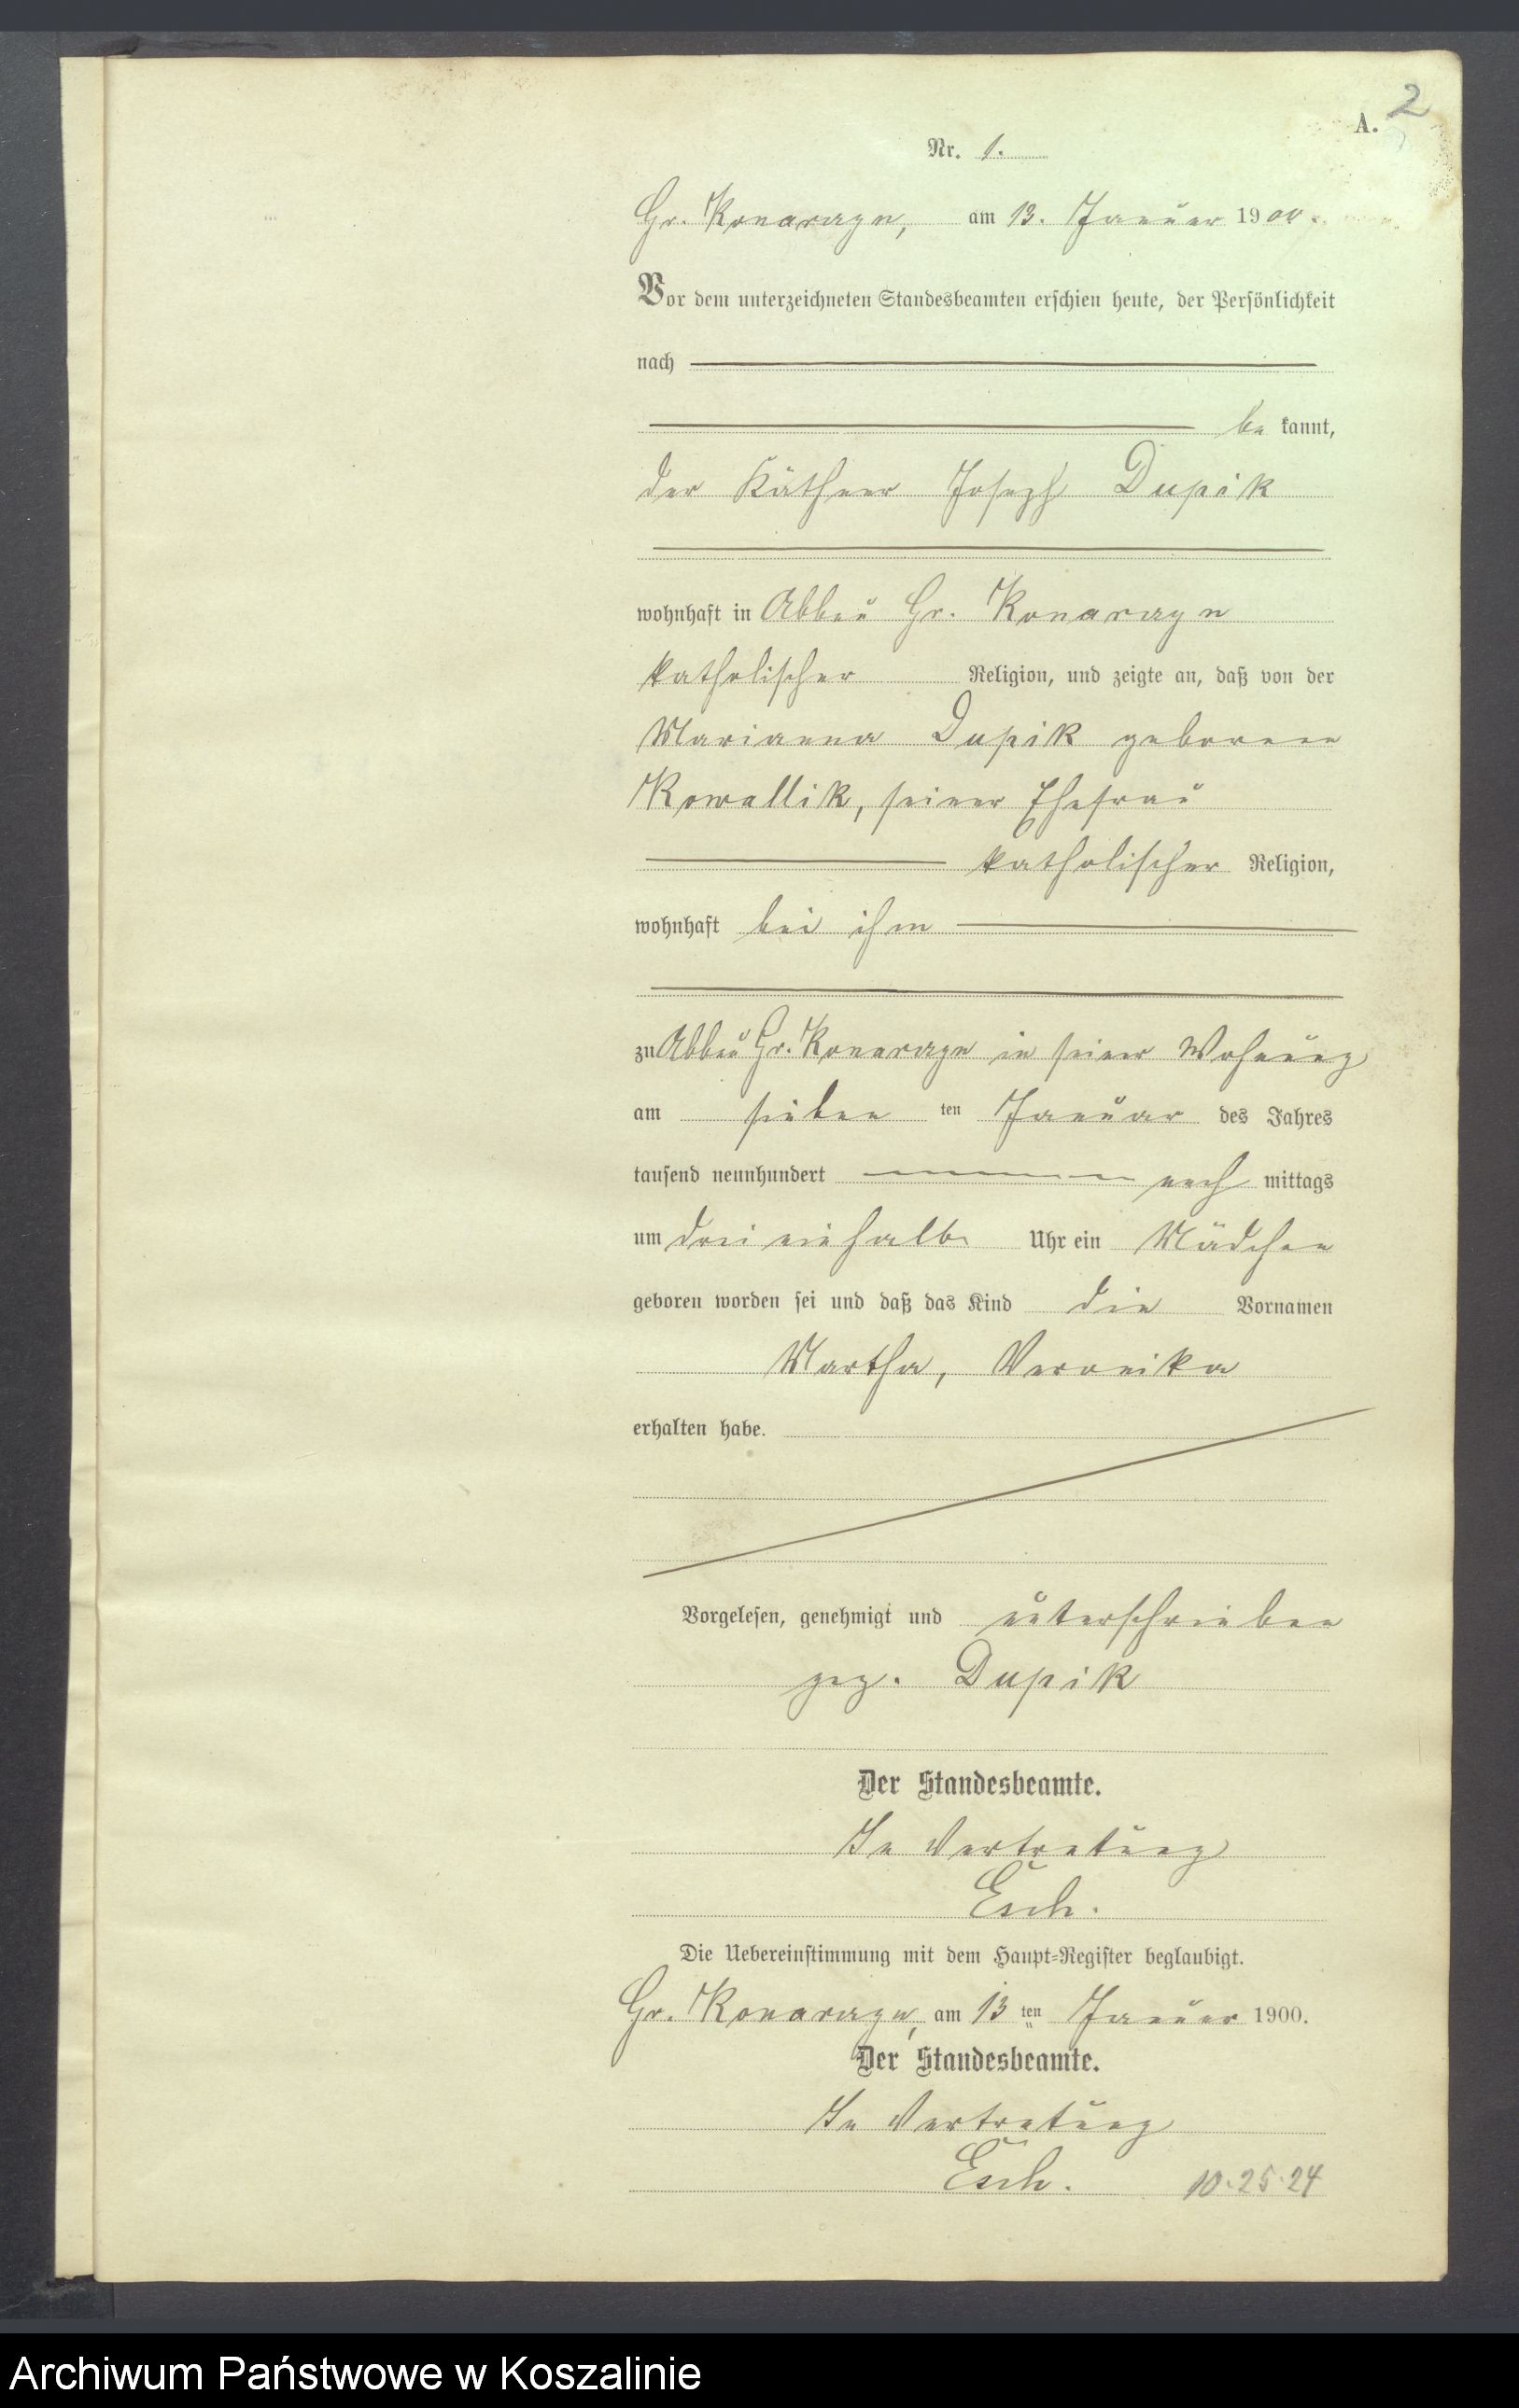 2
A.
Nr. 1.
Gr. Konarzyn, am 13. Januar 1900.
Vor dem unterzeichneten Standesbeamten erschien heute, der Persönlichkeit
nach
be kannt,
der Käthner Joseph Dupik
wohnhaft in Abbau Gr. Konarzyn
katholischer Religion, und zeigte an, daß von der
Marianna Dupik geborene
Kowallik, seiner Ehefrau
katholischer Religion,
wohnhaft bei ihm
zu Abbau Gr. Konarzyn in seiner Wohnung
am sieben ten Januar des Jahres
tausend neunhundert nach mittags
um drei einhalb Uhr ein Mädchen
geboren worden sei und daß das Kind die Vornamen
Martha, Veronika
erhalten habe.
Vorgelesen, genehmigt und unterschrieben
gez. Dupik
Der Standesbeamte.
In Vertretung
Esch.
Die Uebereinstimmung mit dem Haupt-Register beglaubigt.
Gr. Konarzyn, am 13 ten Januar 1900.
Der Standesbeamte.
In Vertretung
Esch.
10.25.24
Archiwum Państwowe w Koszalinie